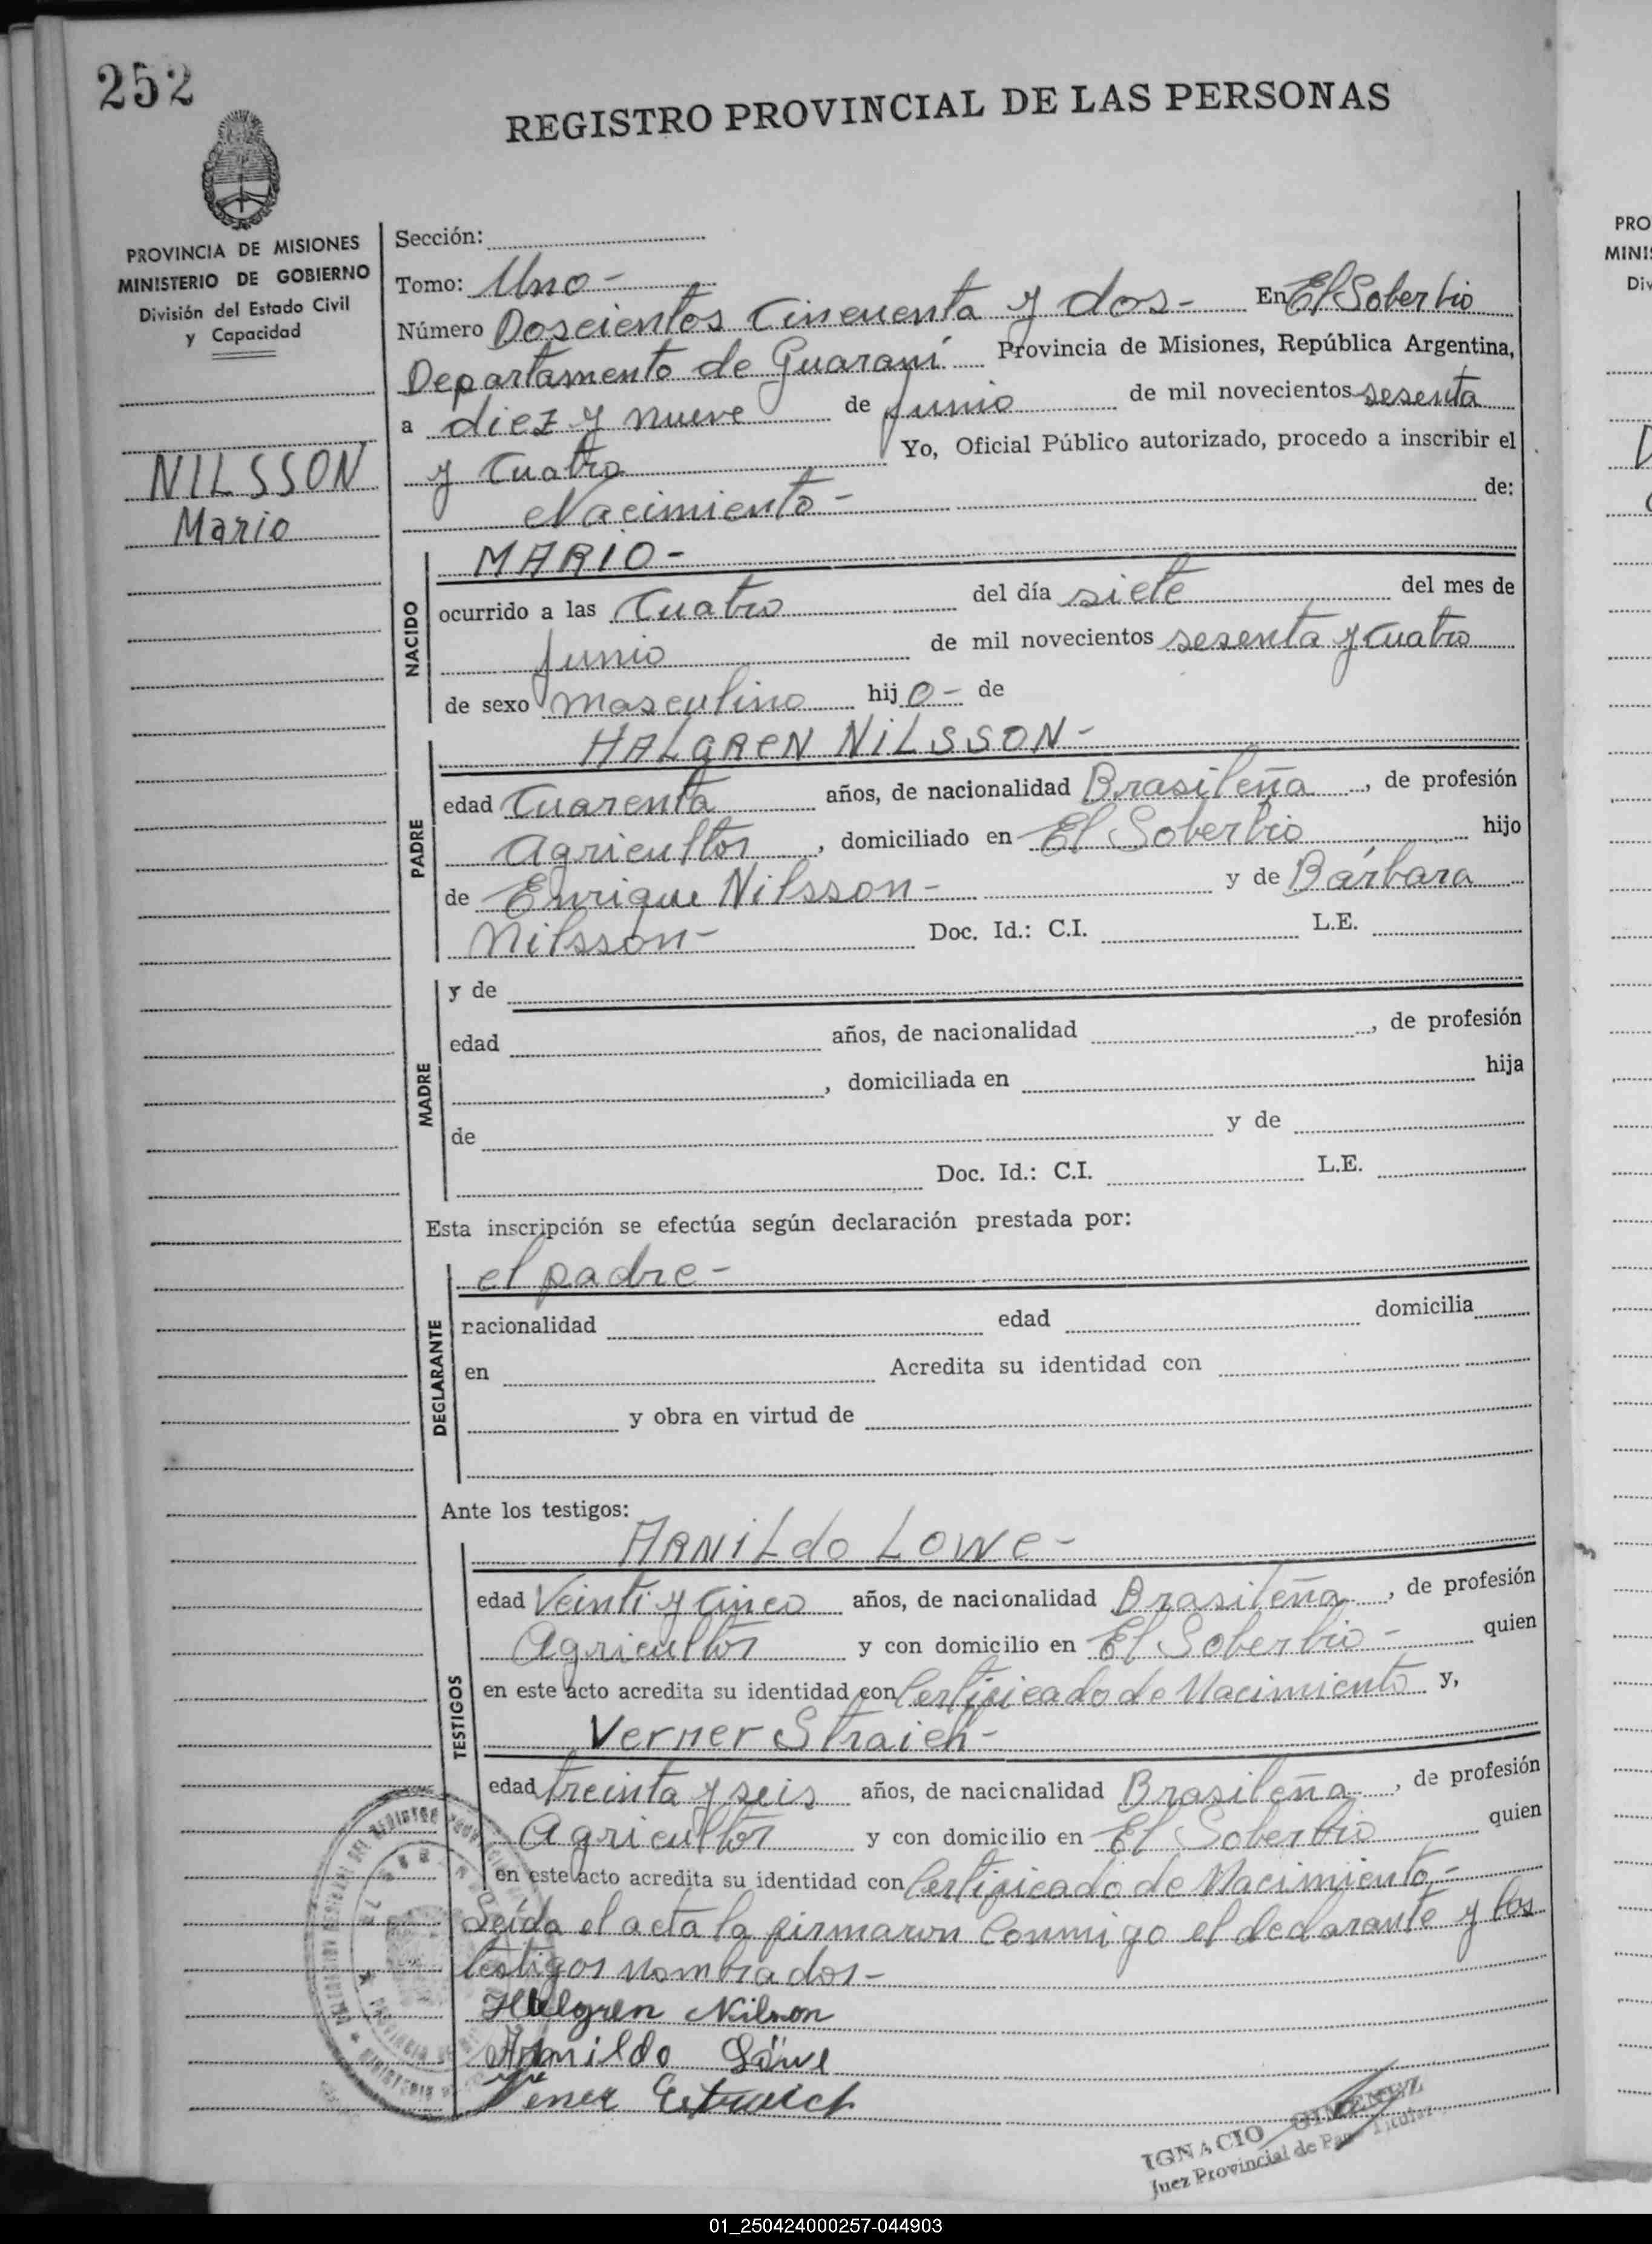 252
REGISTRO PROVINCIAL DE LAS PERSONAS
PROVINCIA DE MISIONES
MINISTERIO DE GOBIERNO
División del Estado Civil
y Capacidad
NILSSON
Mario
Sección:
Tomo: Uno-
Número Doscientos Cincuenta y dos- En El Soberbio
Departamento de Guaraní Provincia de Misiones, República Argentina,
a diez y nueve de Junio de mil novecientos sesenta
y Cuatro Yo, Oficial Público autorizado, procedo a inscribir el
Nacimiento- de:
NACIDO
MARIO-
ocurrido a las Cuatro del día siete del mes de
Junio de mil novecientos sesenta y Cuatro
de sexo masculino hijo- de
PADRE
HALgREN NiLSSON-
edad Cuarenta años, de nacionalidad Brasileña, de profesión
Agricultor, domiciliado en El Soberbio hijo
de Enrique Nilsson- y de Bárbara
Nilsson- Doc. Id.: C.I. L.E.
MADRE
y de
edad años, de nacionalidad , de profesión
, domiciliada en hija
de y de
Doc. Id.: C.I. L.E.
Esta inscripción se efectúa según declaración prestada por:
DEGLARANTE
el padre-
nacionalidad edad domicilia
en Acredita su identidad con
y obra en virtud de
Ante los testigos:
TESTIGOS
ARNiLdo LOWe-
edad Veinti y Cinco años, de nacionalidad Brasileña, de profesión
Agricultor y con domicilio en El Soberbio- quien
en este acto acredita su identidad con Certificado de Nacimiento y,
Verner Straich-
edad treinta y seis años, de nacionalidad Brasileña, de profesión
Agricultor y con domicilio en El Soberbio quien
en este acto acredita su identidad con Certificado de Nacimiento-
Leída el acta la firmaron Conmigo el declarante y los
testigos nombrados-
Halgren Nilson
Arnildo Läwe
Vener Estraich
IGNACIO GIMENEZ
Juez Provincial de Paz Titular
PRO
MINIS
Div
01_250424000257-044903